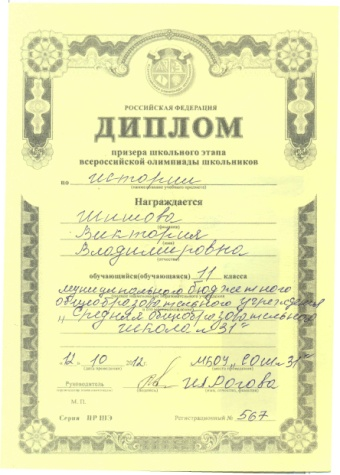 РОССИЙСКАЯ ФЕДЕРАЦИЯ
ДИПЛОМ
призера школьного этапа
всероссийской олимпиады школьников
по истории
(наименование учебного предмета)
Награждается
Шитова
(фамилия)
Виктория
(имя)
Владимировна
(отчество)
обучающийся(обучающаяся) 11 класса
муниципального бюджетного
общеобразовательного учреждения
„Средняя общеобразовательная
школа №31"
12. 10 12 МБОУ „СОШ №31"
(дата проведения) (место проведения)
Руководитель
(подпись)
М. П.
Серия ПР ШЭ Регистрационный № 567